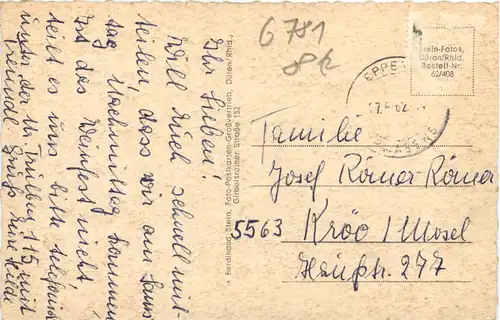 Ihr Lieben!
Will Euch schnell mit-
teilen, dass wir am Sams
tag Nachmittag kommen,
Ist das Weinfest nicht,
teilt es uns bitte telefonisch
unter der Nr Trulben 115 mit
Grüße Eure Hilde
+ Ferdinand Stein, Foto-Postkarten-Großvertrieb, Düren/Rhld.,
Girbelsrather Straße 152
6781
Stein-Fotos,
Düren/Rhld.
Bestell-Nr.
62/408
EPPE
Familie
Josef Römer Römer
5563 Kröv / Mosel
Hauptstr. 277